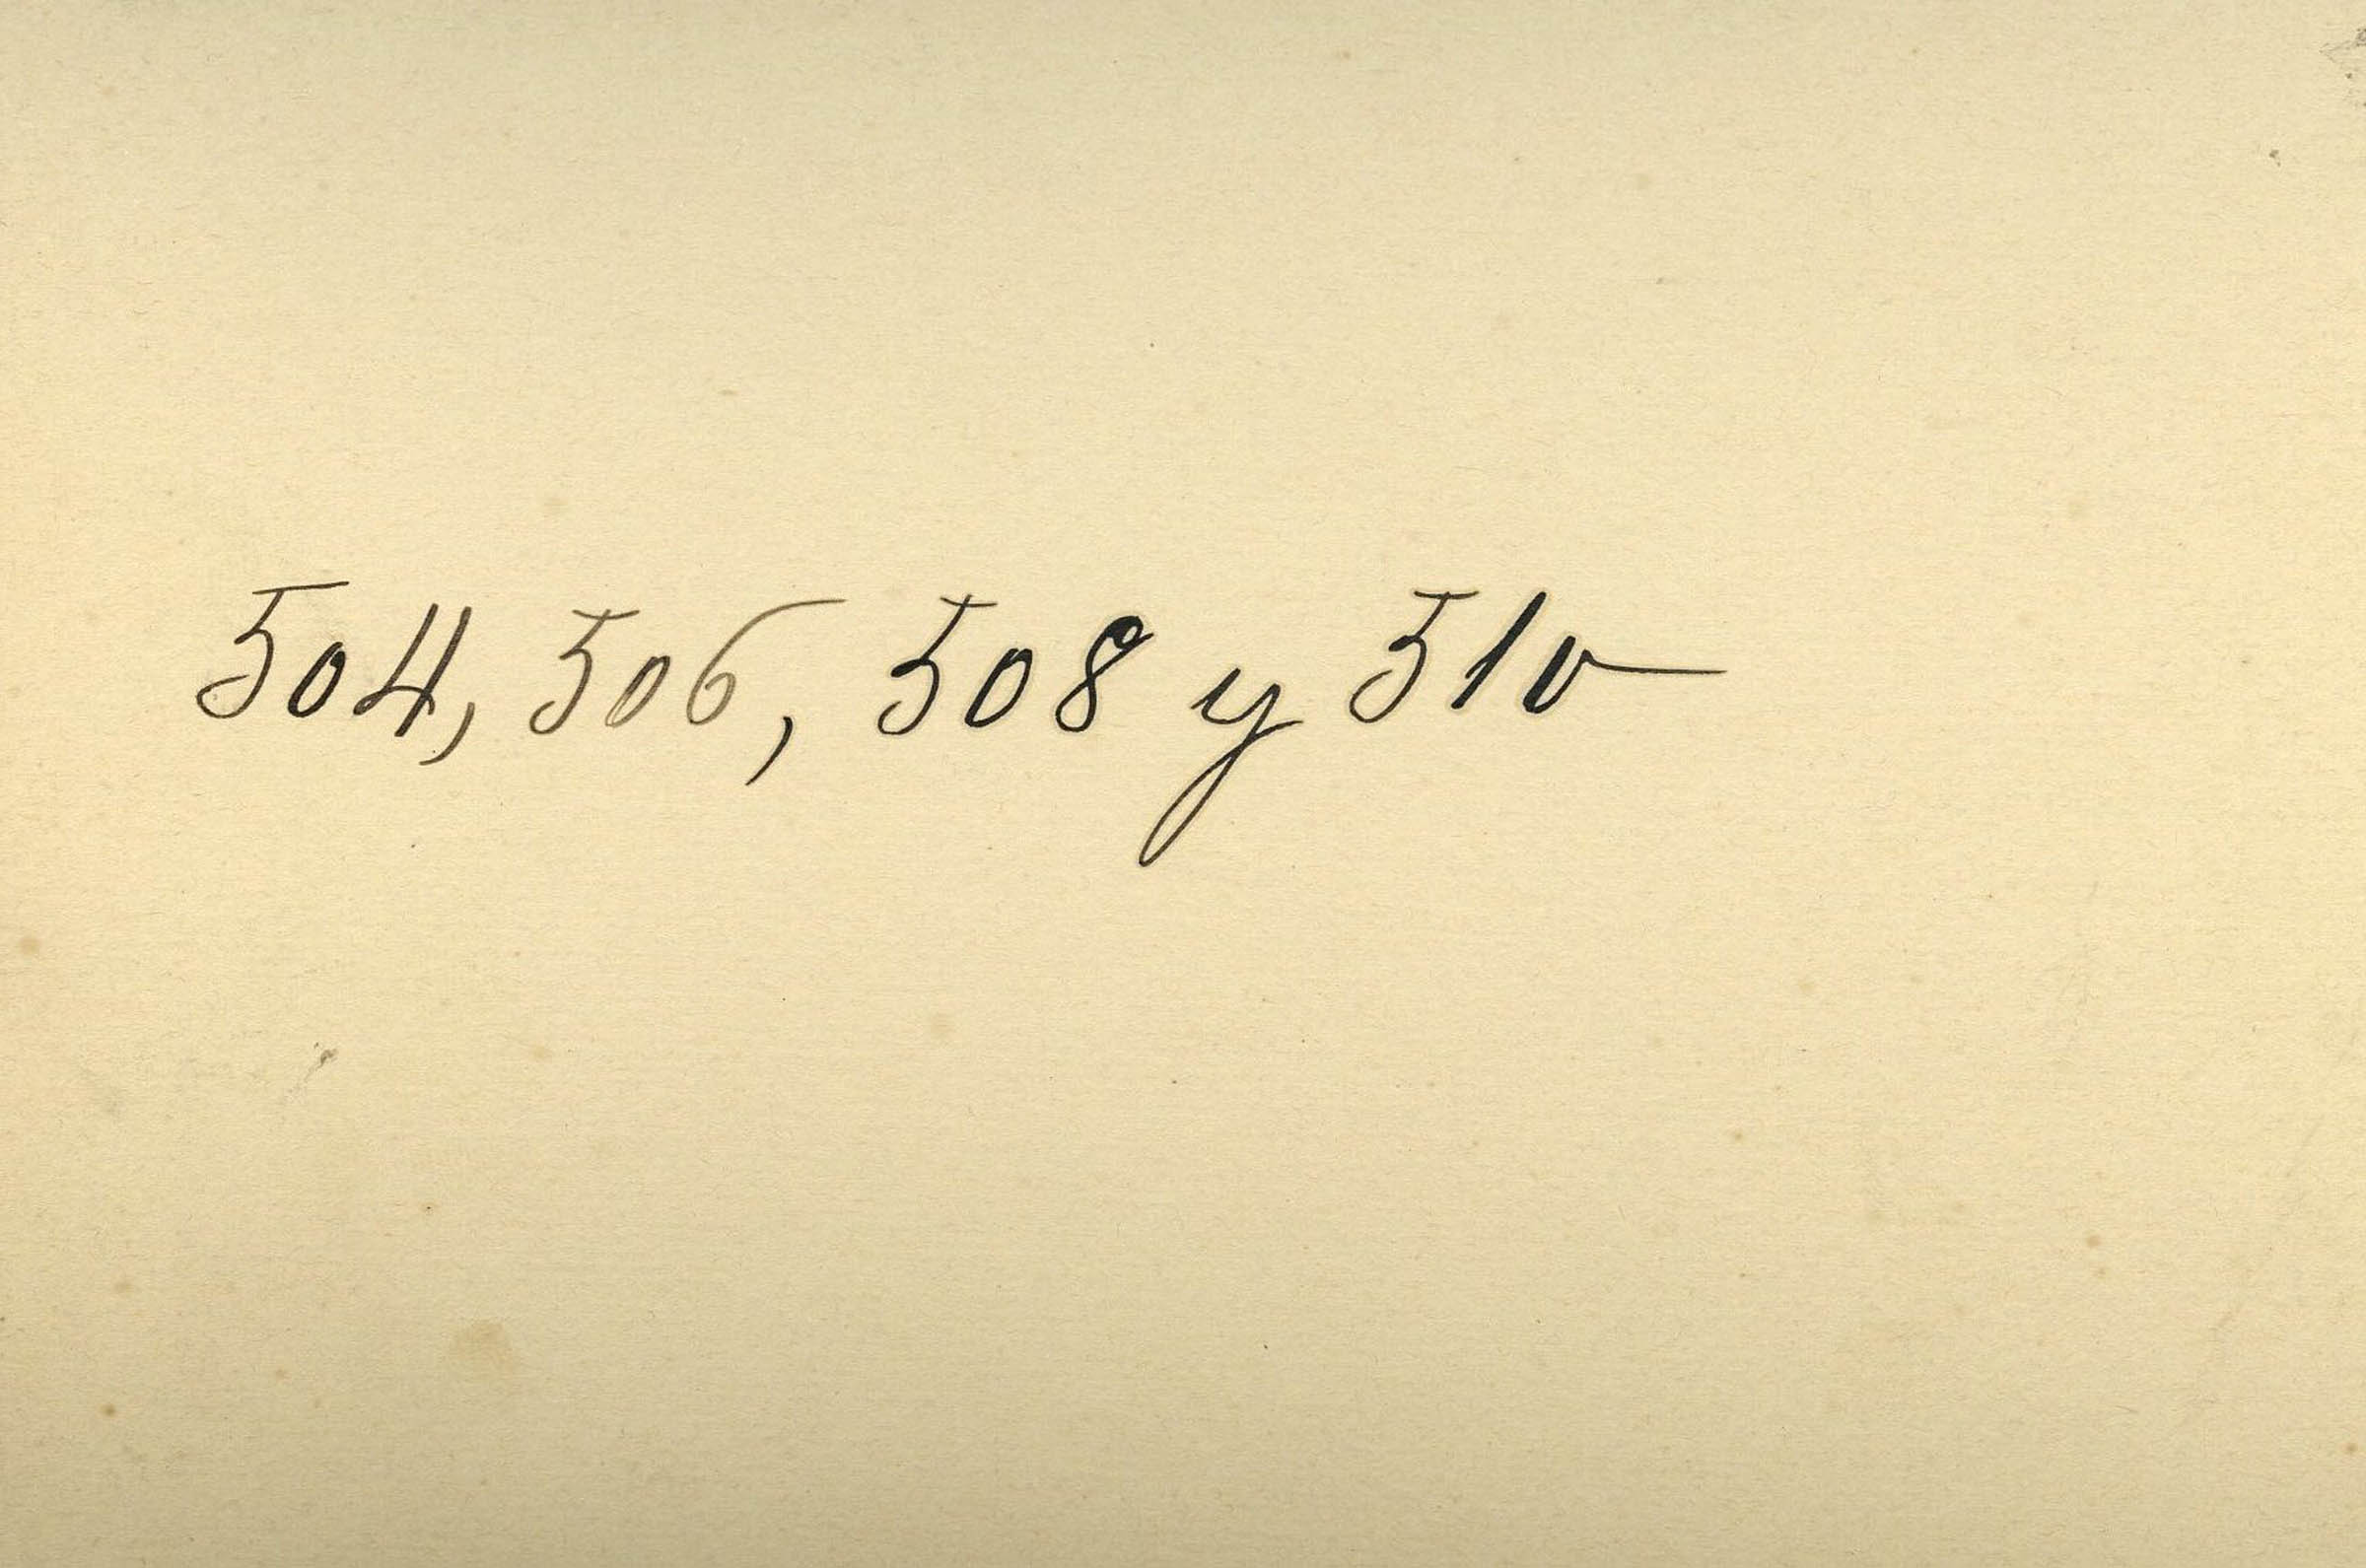 504, 506, 508 y 510